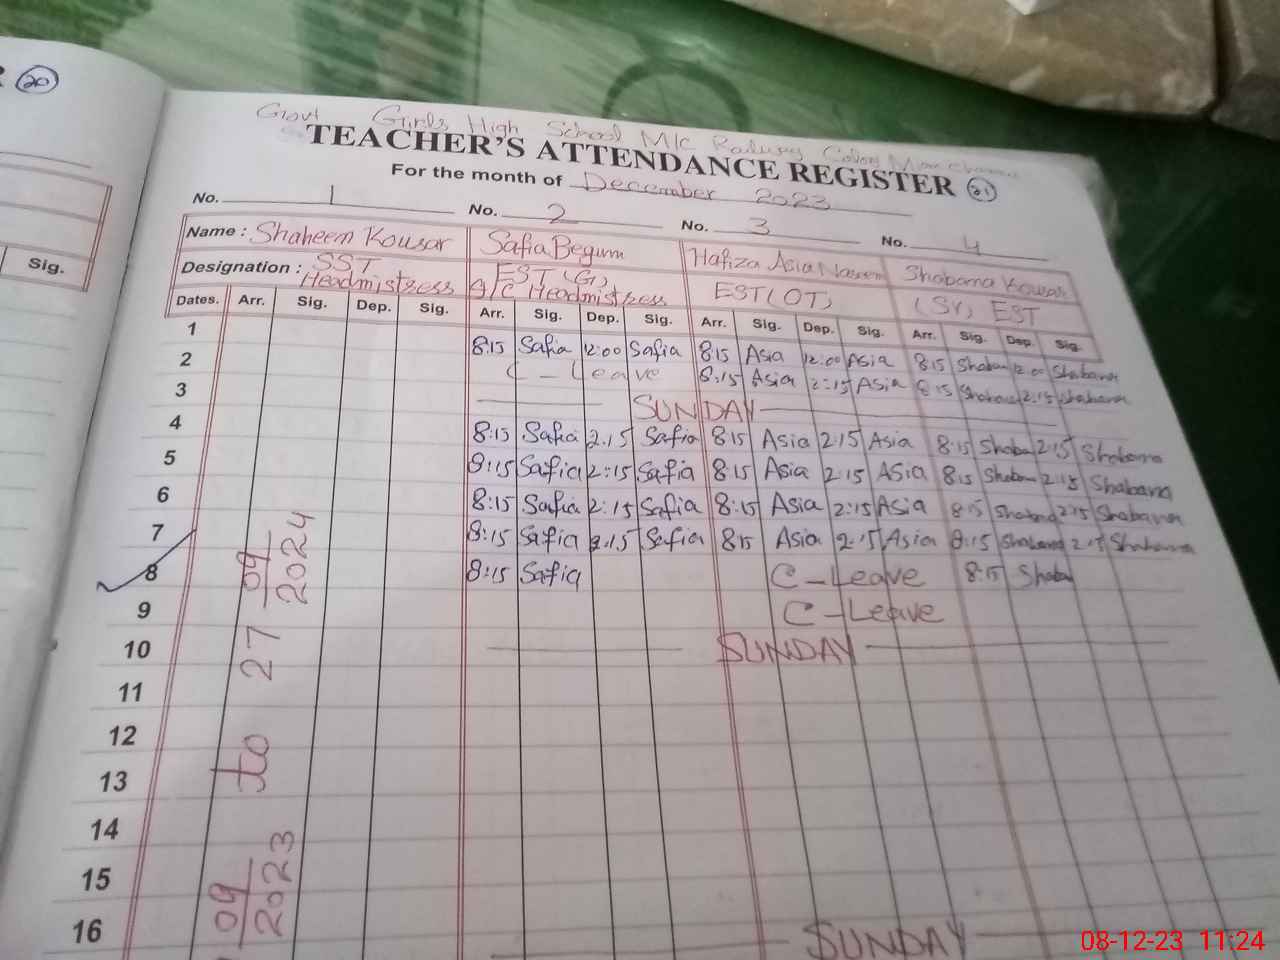 R 20
Govt Girls High School M/C Railway Colony
TEACHER'S ATTENDANCE REGISTER 21
For the month of December 2023
No. 1 No. 2 No. 3 No. 4
Name : Shaheem Kousar Safia Begum Hafiza Asia Naseem Shabana Kousar
Designation : SST Headmistress EST (G) I/C Headmistress EST (OT) (Sr) EST
Sig.
Dates. Arr. Sig. Dep. Sig. Arr. Sig. Dep. Sig. Arr. Sig. Dep. Sig. Arr. Sig. Dep. Sig.
1 8:15 Safia 12:00 Safia 8:15 Asia 12:00 Asia 8:15 Shaban 12:00 Shabana
2 C - Leave 8:15 Asia 2:15 Asia 8:15 Shabana 2:15 Shabana
3 SUNDAY
4 8:15 Safia 2:15 Safia 8:15 Asia 2:15 Asia 8:15 Shaba 2:15 Shabana
5 8:15 Safia 2:15 Safia 8:15 Asia 2:15 Asia 8:15 Shaban 2:15 Shabana
6 8:15 Safia 2:15 Safia 8:15 Asia 2:15 Asia 8:15 Shabana 2:15 Shabana
7 8:15 Safia 2:15 Safia 8:15 Asia 2:15 Asia 8:15 Shabana 2:15 Shabana
8 8:15 Safia C - Leave 8:15 Shaba
9 C - Leave
10 SUNDAY
11
12
13
14
15
16 SUNDAY
09/2023 to 27 09/2024
08-12-23 11:24